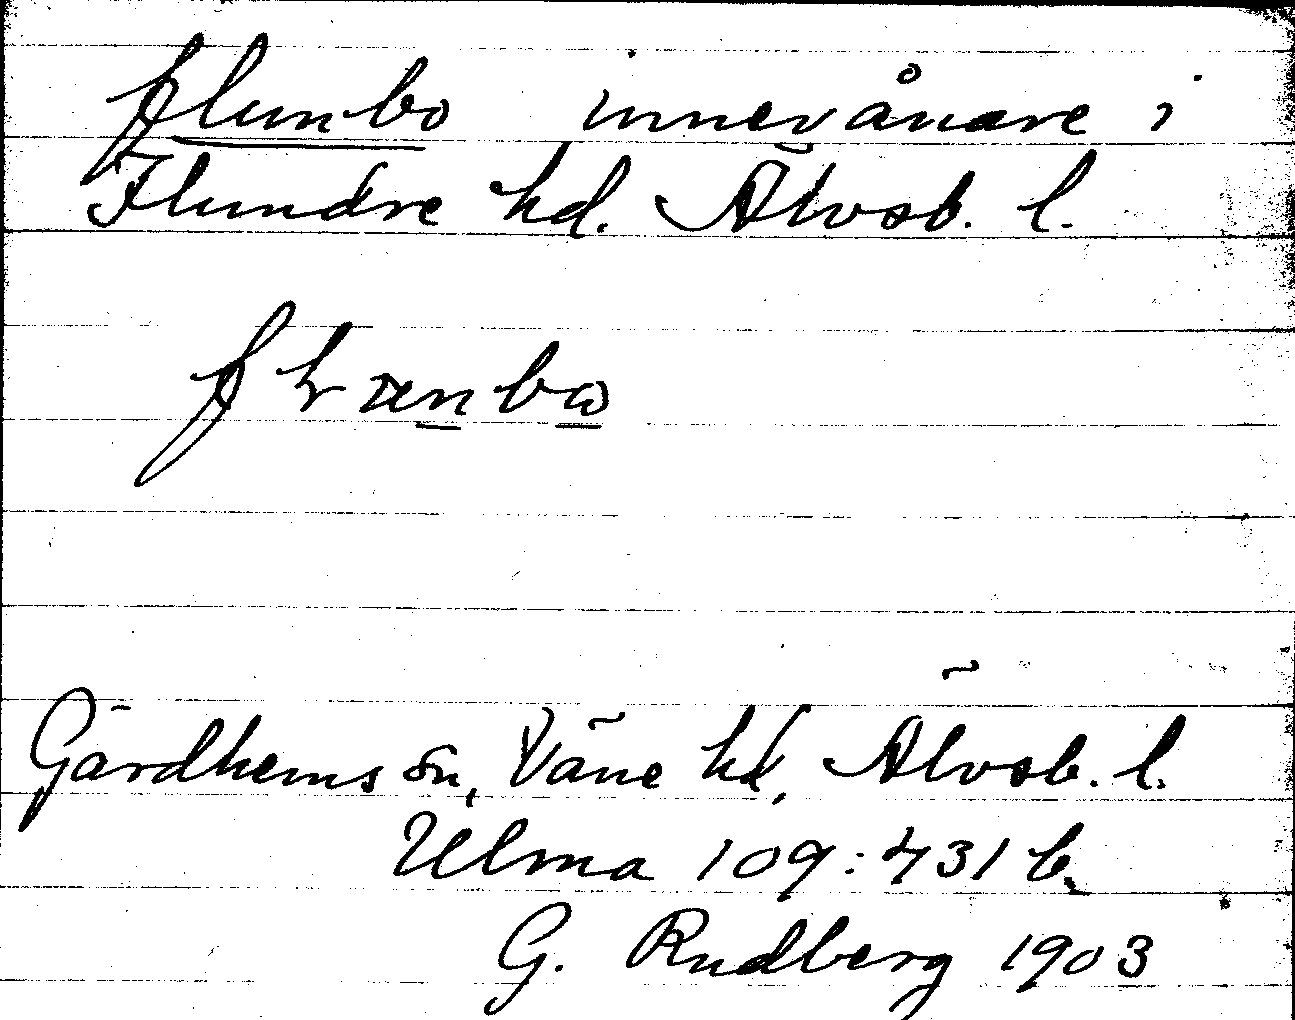 flunbo innevånare i
Flundre hd. Älvsb. l.
Gärdhems sn, Väne hd, Älvsb. l.
Ulma 109:431 b.
G. Rudberg 1903